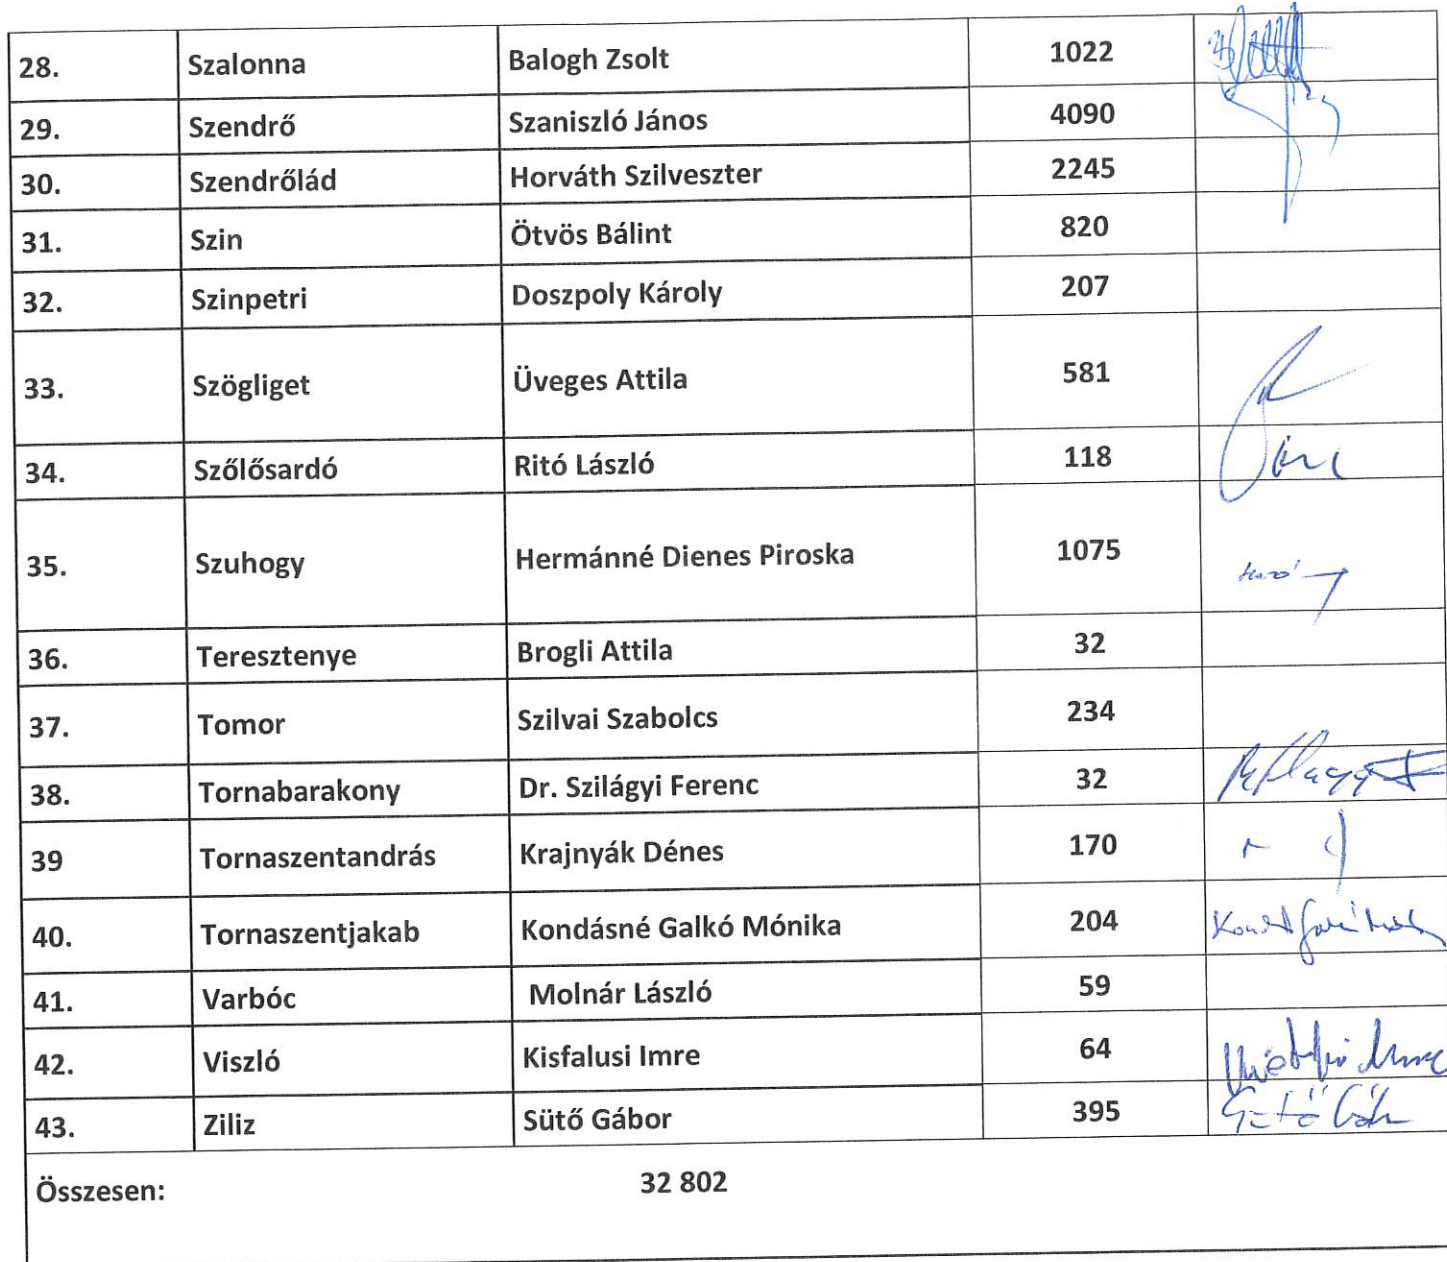 28. Szalonna Balogh Zsolt 1022
29. Szendrő Szaniszló János 4090
30. Szendrőlád Horváth Szilveszter 2245
31. Szin Ötvös Bálint 820
32. Szinpetri Doszpoly Károly 207
33. Szögliget Üveges Attila 581
34. Szőlősardó Ritó László 118
35. Szuhogy Hermánné Dienes Piroska 1075
36. Teresztenye Brogli Attila 32
37. Tomor Szilvai Szabolcs 234
38. Tornabarakony Dr. Szilágyi Ferenc 32
39 Tornaszentandrás Krajnyák Dénes 170
40. Tornaszentjakab Kondásné Galkó Mónika 204
41. Varbóc Molnár László 59
42. Viszló Kisfalusi Imre 64
43. Ziliz Sütő Gábor 395
Összesen: 32 802